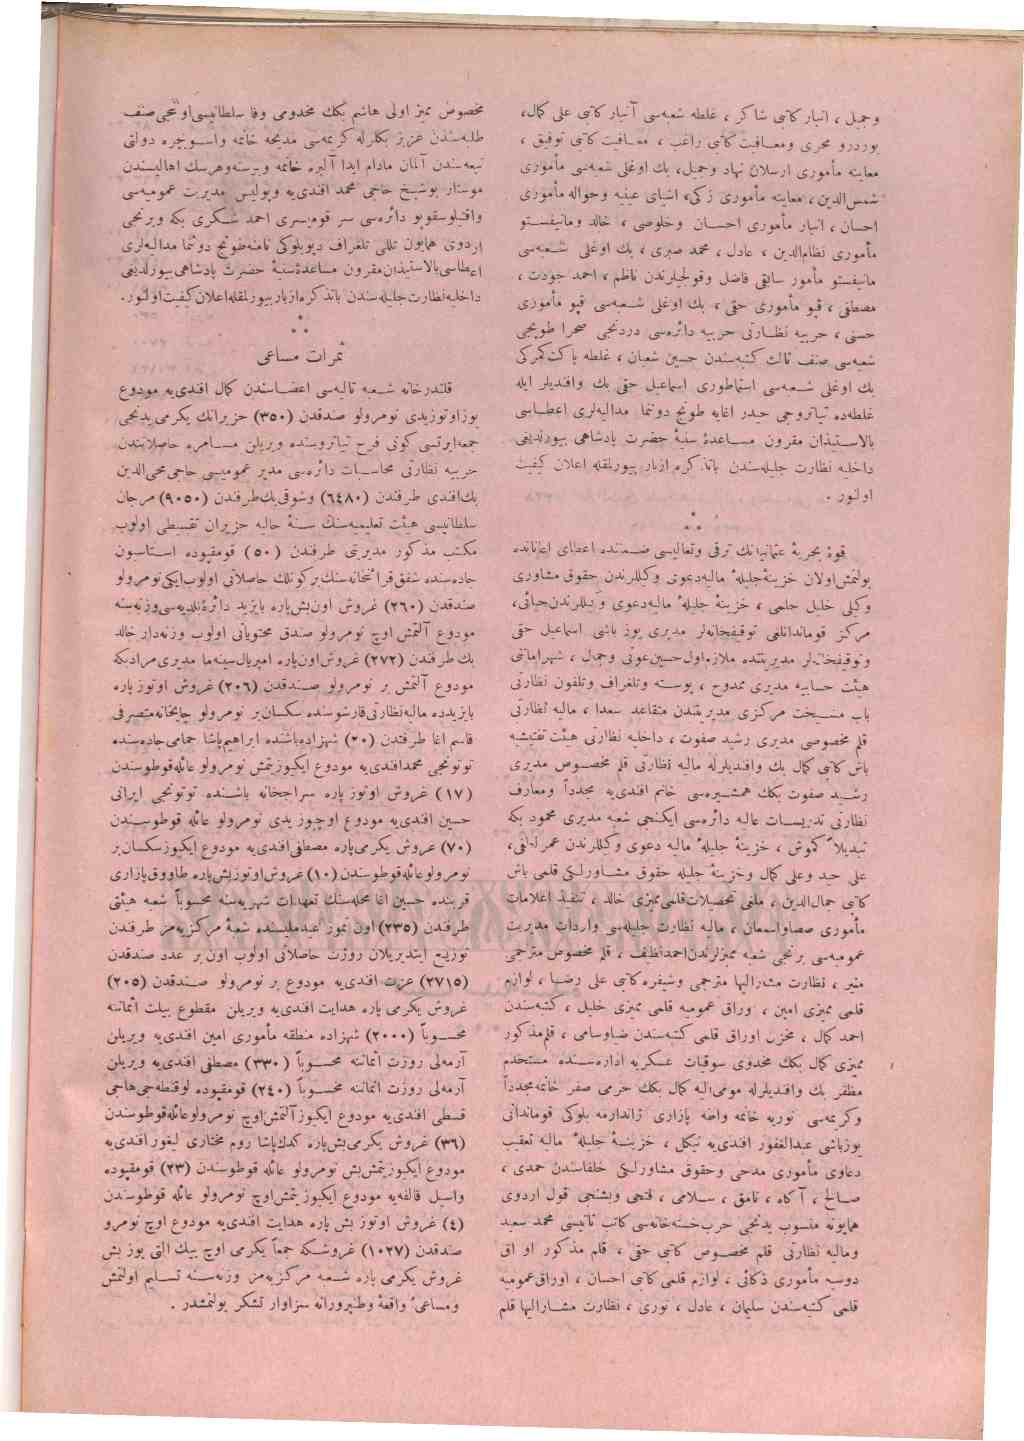 وجميل ، انبار كاتبی شاكر ، غلطه شعبه‌سی آنبار كاتبی علی كمال،
بوردرو محرری ومعافيت كاتبی راغب ، معافيت كاتبی توفيق ،
معاينه مأموری ارسلان نهاد وجميل، بك اوغلی شعبه‌سی مأموری
شمس‌الدين ، معاينه مأموری زكی، اشيای عينيه وحواله مأموری
احسان ، انبار مأموری احسان وخلوصی ، خالد ومانيفستو
مأموری نظام‌الدين ، عادل ، محمد صبری ، بك اوغلی شعبه‌سی
مانيفستو مأمور سابقی فاضل وقولجيلرندن ناظم ، احمد جودت ،
مصطفی ، قپو مأموری حقی ، بك اوغلی شعبه‌سی قپو مأموری
حسنی ، حربيه نظارتی حربيه دائره‌سی دردنجی صحرا طوپجی
شعبه‌سی صنف ثالث كتبه‌سندن حسين شعبان ، غلطه پاكت كمركی
بك اوغلی شعبه‌سی استماطوری اسماعيل حقی بك وافنديلر ايله
غلطه‌ده تياتروجی حيدر اغايه طونج دوننما مداليه‌لری اعطاسی
بالاستيذان مقرون مساعدۀ سنيۀ حضرت پادشاهی بيورلديغی
داخليه نظارت جليله‌سندن باتذكره ازبار بيورلمقله اعلان كيفيت
اولنور .
قوۀ بحريۀ عثمانيه‌نك ترقی وتعاليسی ضمننده اعطای اعانه‌ده
بولنمش اولان خزينۀ جليلۀ ماليه دعوی وكيللرندن حقوق مشاوری
وكيلی خليل حلمی ، خزينۀ جليلۀ ماليه دعوی وكيللرندن حياتی،
مركز قوماندانلغی توقيفخانه‌لر مديری يوز باشی اسماعيل حقی
وتوقيفخانه‌لر مديريتنده ملازم اول حسين عونی وجمال ، شهرامانتی
هيئت حسابيه مديری ممدوح ، پوسته وتلغراف وتلفون نظارتی
باب مشيخت مركزی مديريتندن متقاعد سعدا ، ماليه نظارتی
قلم مخصوصی مديری رشيد صفوت ، داخليه نظارتی هيئت تفتيشيه
باش كاتبی كمال بك وافنديلرله ماليه نظارتی قلم مخصوص مديری
رشيد صفوت بكك همشيره‌سی خانم افندی‌يه مجدداً ومعارف
نظارتی تدريسات عاليه دائره‌سی ايكنجی شعبه مديری محمود بكه
تبديلاً كموش ، خزينۀ جليلۀ ماليه دعوی وكيللرندن عمر لطفی،
علی حيد وعلی كمال وخزينۀ جليله حقوق مشاورلكی قلمی باش
كاتبی جمال‌الدين ، ملغی تحصيلات قلمی مميزی خالد ، تنفيذ اعلامات
مأموری صفاواسمعان ، ماليه نظارت جليله‌سی واردات مديريت
عموميه‌سی برنجی شعبه مميزلرندن احمد نظيف ، قلم مخصوص مترجمی
منير ، نظارت مشاراليها مترجمی وشيفره كاتبی علی رضا ، لوازم
قلمی مميزی امين ، اوراق عموميه قلمی مميزی خليل ، كتبه‌سندن
احمد كمال ، مخزن اوراق قلمی كتبه‌سندن ضياوسامی ، قلم مذكور
مميزی كمال بكك مخدومی سوقيات عسكريه اداره‌سنده مستخدم
مظفر بك وافنديلرله مومی‌اليه كمال بكك حرمی صفر خانمه مجدداً
وكريمه‌سی نوريه خانمه واطه پازاری ژاندارمه بلوكی قوماندانی
يوزباشی عبدالغفور افندی‌يه نيكل ، خزينۀ جليلۀ ماليه تعقيب
دعاوی مأموری مدحی وحقوق مشاورلكی خلفاسندن حمدی ،
صالح ، آكاه ، نامق ، سلامی ، فتحی وبشنجی قول اردوی
همايونه منسوب يدنجی حرب خسته‌خانه‌سی كاتب ثانيسی محمد سعيد
وماليه نظارتی قلم مخصوص كاتبی حقی ، قلم مذكور اوراق
دوسيه مأموری ذكائی ، لوازم قلمی كاتبی احسان ، اوراق عموميه
قلمی كتبه‌سندن سليمان ، عادل ، نوری ، نظارت مشاراليها قلم
مخصوص مميز اولی هاشم بكك مخدومی وفا سلطانيسی اوچنجی صنف
طلبه‌سندن عزيز بكلرله كريمه‌سی مديحه خانمه واسوچره دولتی
تبعه‌سندن آلمان مادام ايدا آلبره خانمه وبوسنه وهرسك اهاليسندن
موستار بوشيخ حاجی محمد افندی‌يه وپوليس مديريت عموميه‌سی
واقنيلوقوپو دائره‌سی سر قوميسری احمد شكری بكه وبرنجی
اردوی همايون تلی تلغراف ديوبلوكی نامنه طونج دوننما مداليه‌لری
اعطاسی بالاستيذان مقرون مساعدۀ سنيۀ حضرت پادشاهی بيورلديغی
داخليه نظارت جليله‌سندن باتذكره ازبار بيورلمقله اعلان كيفيت اولنور.
ثمرات مساعی
قلندرخانه شعبه تاليه‌سی اعضاسندن كمال افندی‌يه مودوع
يوزاوتوزيدی نومرولو صندقدن (٣٥٠) حزيرانك يكرمی يدنجی
جمعه ايرتسی كونی فرح تياتروسنده ويريلن مسامره حاصلاتندن
حربيه نظارتی محاسبات دائره‌سی مدير عموميسی حاجی محی‌الدين
بك افندی طرفندن (٦٤٨٠) وشوقی بك طرفندن (٩٠٥٠) مرجان
سلطانيسی هيئت تعليميه‌سنك سنۀ حاليه حزيران تقسيطی اولوب
مكتب مذكور مديرتی طرفندن (٥٠) قومقپوده استاسيون
جاده‌سنده شفق قرائتخانه‌سنك بر كونلك حاصلاتی اولوب ايكی نومرولو
صندقدن (٢٦٠) غروش اون بش پاره بايزيد دائرۀ بلديه‌سی وزنه‌سنه
مودوع آلتمش اوچ نومرولو صندق محتوياتی اولوب وزنه‌دار خالد
بك طرفندن (٢٧٢) غروش اون پاره امپريال سينه‌ما مديری مراد بكه
مودوع آلتمش بر نومرولو صندقدن (٢٠٦) غروش اوتوز پاره
بايزيدده ماليه نظارتی قارشوسنده سكسان بر نومرولو چايخانه متصرفی
قاسم اغا طرفندن (٢٠) شهزاده باشنده ابراهيم پاشا حمامی جاده‌سنده
توتونجی محمد افندی‌يه مودوع ايكيوز يتمش نومرولو عائله قوطوسندن
(١٧) غروش اوتوز پاره سراجخانه باشنده توتونجی ايرانی
حسين افندی‌يه مودوع اوچوز يدی نومرولو عائله قوطوسندن
(٧٠) غروش يكرمی پاره مصطفی افندی‌يه مودوع ايكيوز سكسان بر
نومرولو عائله قوطوسندن (١٠) غروش اوتوز بش پاره طاووق پازاری
قربنده حسين اغا محله‌سنك تعهدات شهريه‌سنه محسوباً شعبه هيئتی
طرفندن (٢٣٥) اون تموز عيد مليسنده شعبۀ مركزيه‌مز طرفندن
توزيع ايتديريلان روزت حاصلاتی اولوب اون بر عدد صندقدن
(٢٧١٥) عزت افندی‌يه مودوع بر نومرولو صندقدن (٢٠٥)
غروش يكرمی پاره هدايت افندی‌يه ويريلن مقطوع بيلت اثماننه
محسوباً (٢٠٠٠) شهزاده منطقه مأموری امين افندی‌يه ويريلن
آرمه‌لی روزت اثماننه محسوباً (٣٣٠) مصطفی افندی‌يه ويريلن
آرمه‌لی روزت اثماننه محسوباً (٢٤٠) قومقپوده لوقنطه‌جی هاجی
قسطی افندی‌يه مودوع ايكيوز آلتمش اوچ نومرولو عائله قوطوسندن
(٣٦) غروش يكرمی بش پاره كدك پاشا روم مختاری ليغور افندی‌يه
مودوع ايكيوز يتمش بش نومرولو عائله قوطوسندن (٢٣) قومقپوده
واسيل قالفه‌يه مودوع ايكيوز يتمش اوچ نومرولو عائله قوطوسندن
(٤) غروش اوتوز بش پاره هدايت افندی‌يه مودوع اوچ نومرو
صندقدن (١٠٢٧) غروشكه جمعاً يكرمی اوچ بيك التی يوز بش
غروش يكرمی پاره شعبه مركزيه‌مز وزنه‌سنه تسليم اولنمش
ومساعیٔ واقعۀ وطنپرورانه سزاوار تشكر بولنمشدر .